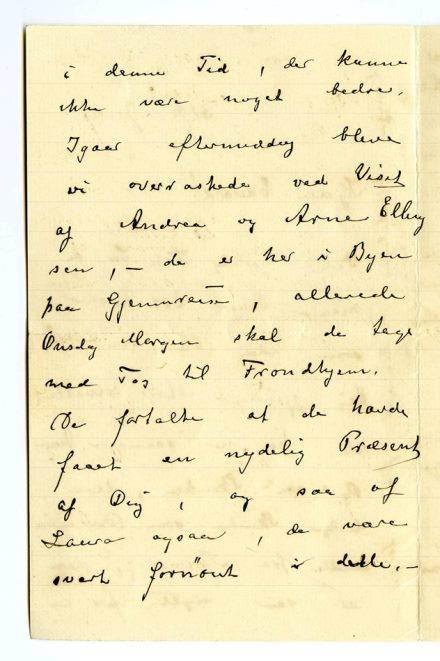 i denne Tid, der kunne
ikke være noget bedre.
Igaar eftermiddag bleve
vi overraskede ved Visit
af Andrea og Arne Elling
sen, – de er her i Byen
paa Gjennemreise, allerede
Onsdag Morgen skal de tage
med Tog til Trondhjem.
De fortalte at de havde
faaet en nydelig Præsent
af Dig, og saa af
Laura ogsaa, de være
svært fornöiet i dette. –